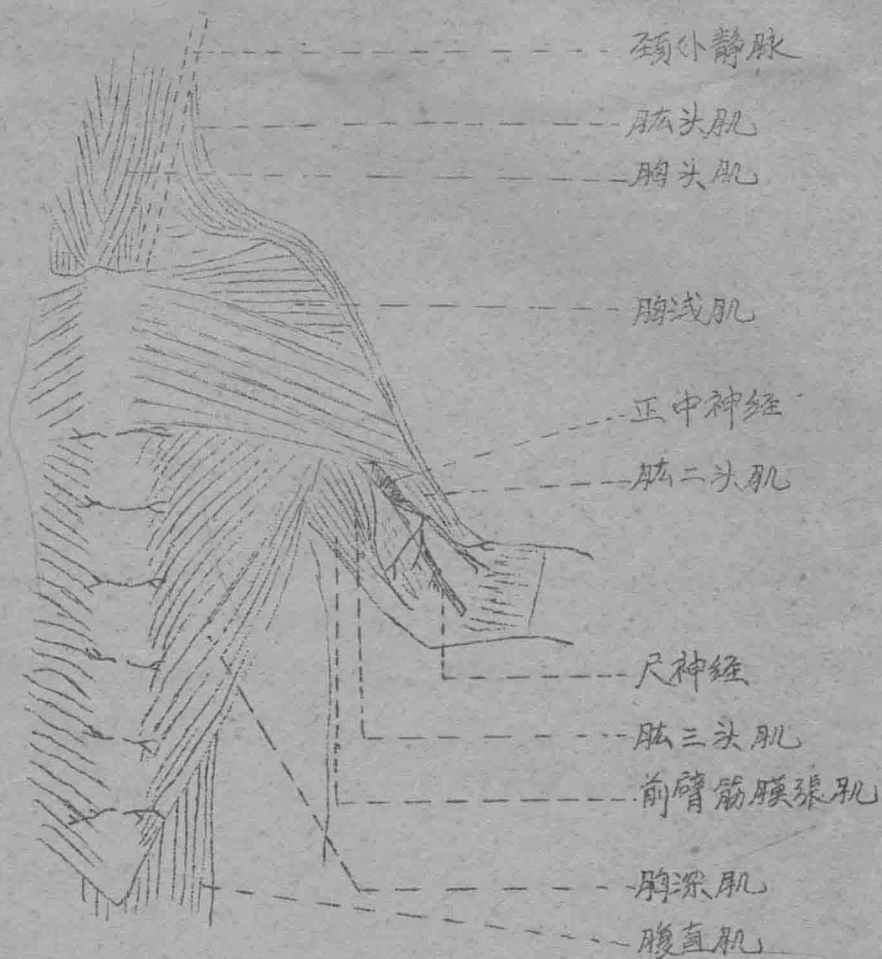 颈外静脉
肱头肌
胸头肌
胸浅肌
正中神经
肱二头肌
尺神经
肱三头肌
前臂筋膜張肌
胸深肌
腹直肌